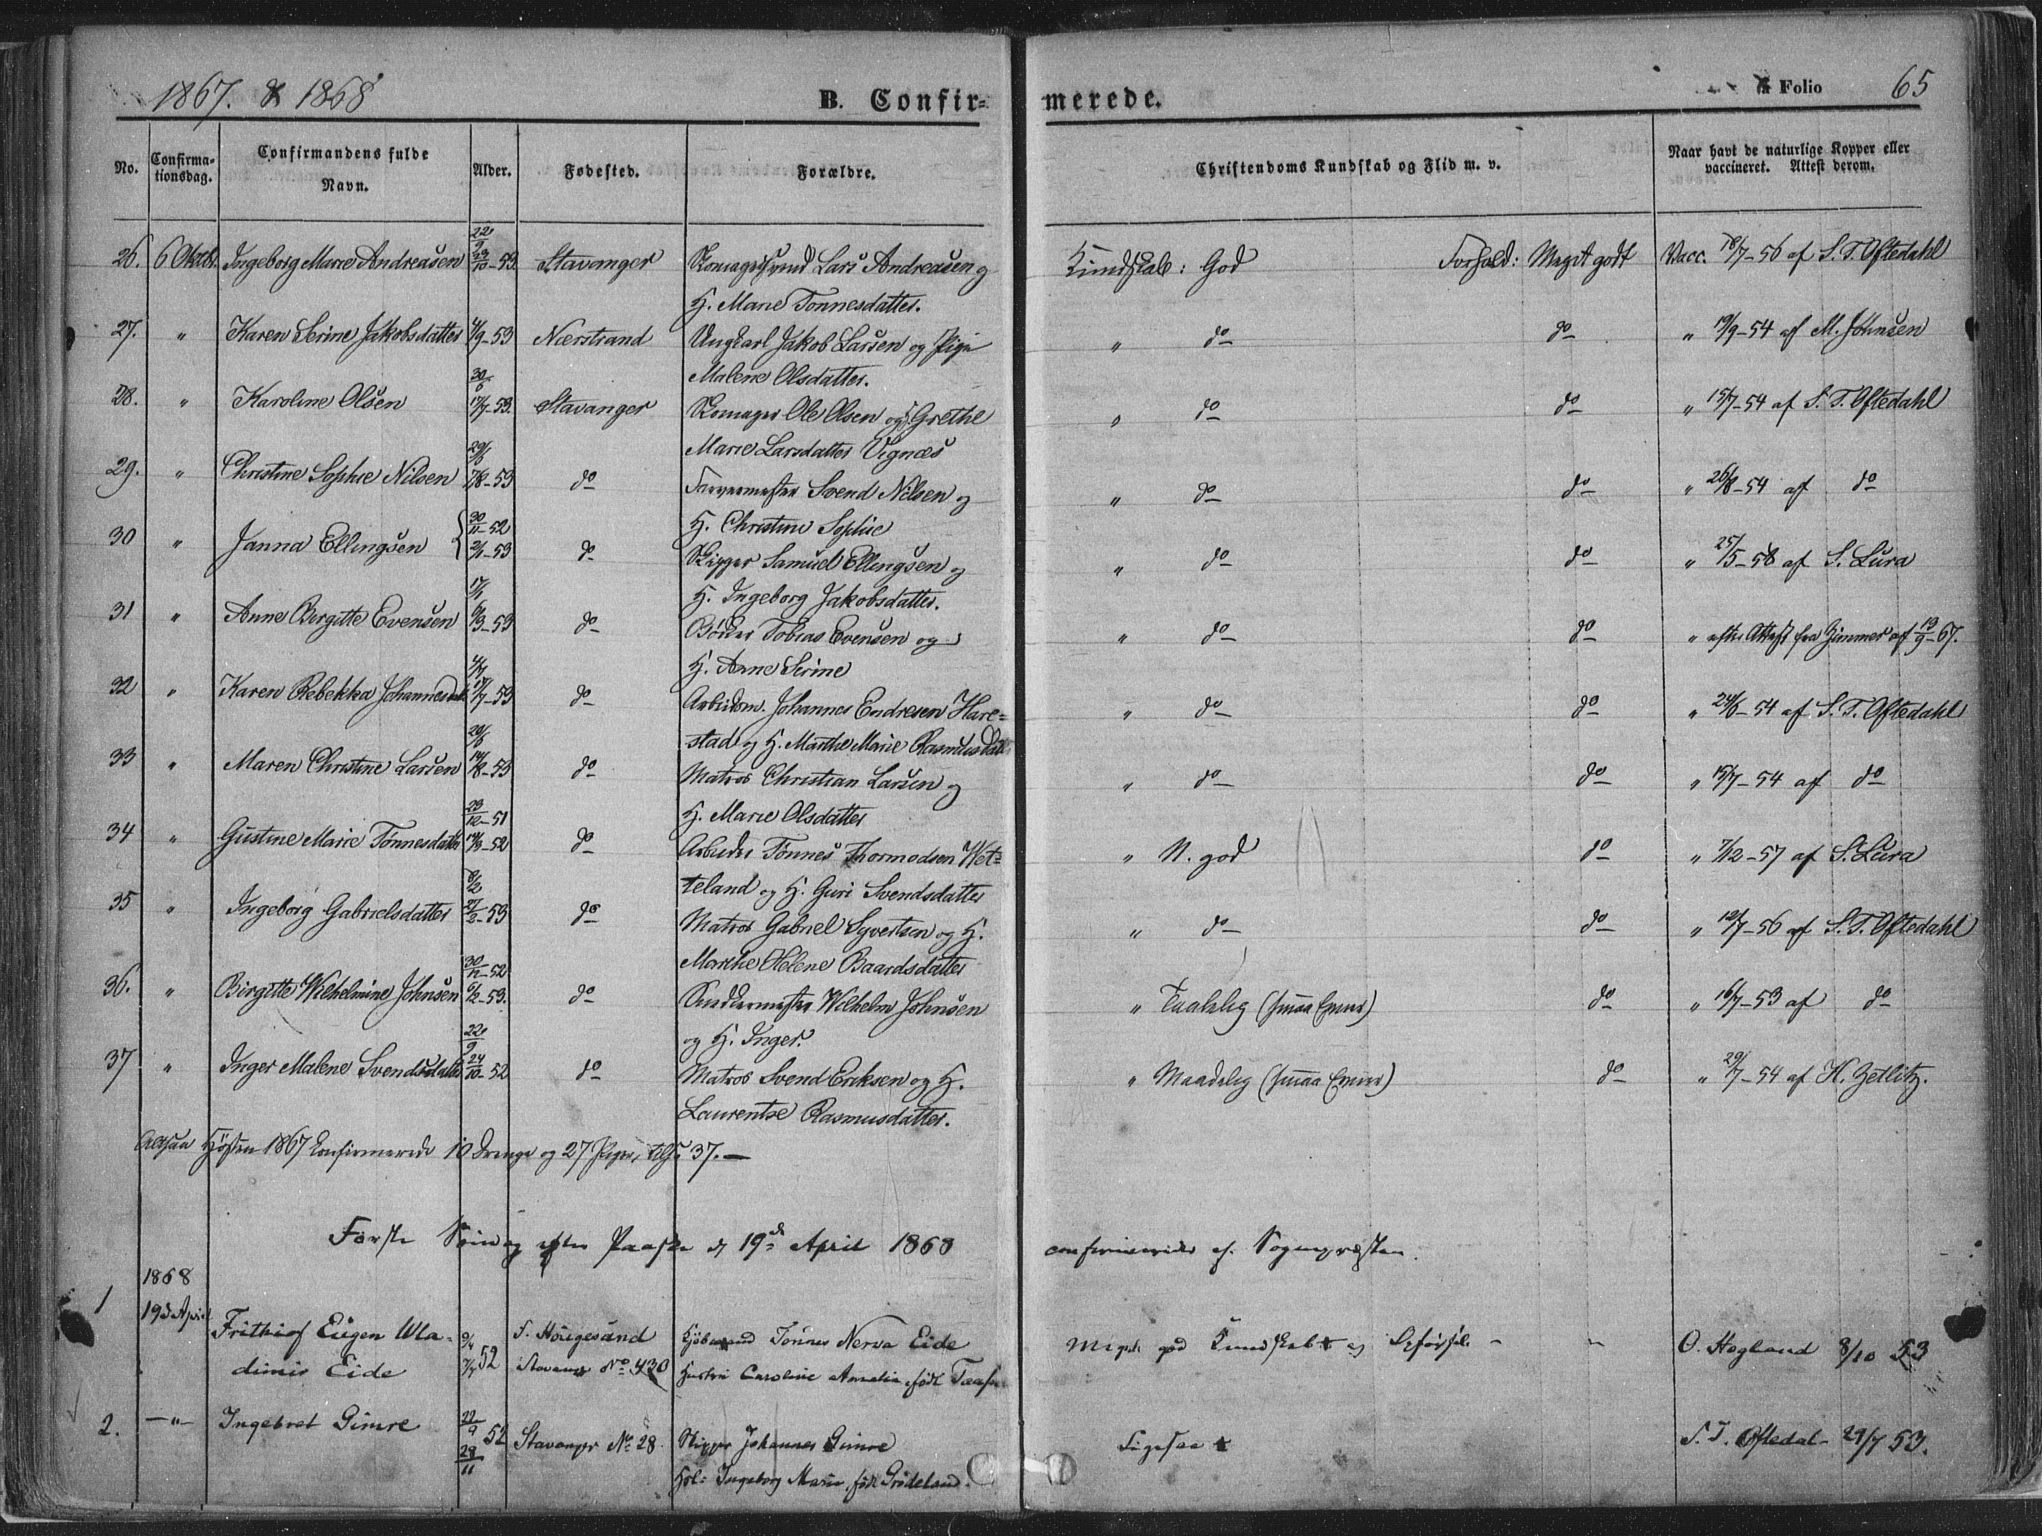 1867. & 1868
B. Confirmerede.
Folio 65
No.
Confirmationsdag.
Confirmandens fulde Navn.
Alder.
Fødested.
Forældre.
Christendoms Kundskab og Flid m. v.
Naar havt de naturlige Kopper eller vaccineret. Attest derom.
26. 6 Oktbr. Ingeborg Marie Andreasen 22/9 23/10-53 Stavanger Skomagersvend Lars Andreasen og Kundskab: God Forhold: Meget godt Vacc. 18/7-56 af S. T. Oftedahl
H. Marie Tønnesdatter.
27. " Karen Serine Jakobsdatter 4/9-53 Nærstrand Ungkarl Jakob Larsen og Pige " do do " 19/9-54 af M. Johnsen
Malene Olsdatter.
28. " Karoline Olsen 30/6 17/7-53. Stavanger Skomager Ole Olsen og Grethe " do do " 15/7-54 af S. T. Oftedahl
Marie Larsdatter Vignæs
29. " Christine Sophie Nilsen 29/6 7/8-53 do Farvermester Svend Nilsen og " do do " 26/8-54 af do
H. Christine Sophie
30 " Janna Ellingsen 30/11-52 2/1-53 do Skipper Samuel Ellingsen og " do do " 25/5-58 af S. Lura
H. Ingeborg Jakobsdatter.
31 " Anne Birgitte Evensen 17/1 6/3-53 do Bødker Tobias Evensen og " do do " efter Attest fra Zimmer af 13/9-67.
H. Anne Serine
32 " Karen Rebekka Johannesdatt 4/7 17/7-53 do Arbeidsm. Johannes Endresen Hare- " do do " 24/6-54 af S. T. Oftedahl
stad og H. Marthe Marie Rasmusdatt
33 " Maren Christine Larsen 29/6 14/8-53 do Matros Christian Larsen og " do do " 15/7-54 af do
H. Marie Olsdatter
34 " Gustine Marie Tønnesdatter 23/12-51 14/3-52 do Arbeider Tønnes Thormodsen Wet- " N. god do " 7/12-57 af S. Lura
teland og H. Guri Svendsdatter
35 " Ingeborg Gabrielsdatter 8/2 27/2-53 do Matros Gabriel Syvertsen og H. " do do " 12/7-56 af S. T. Oftedahl
Marthe Helene Baardsdatter
36. " Birgitte Wilhelmine Johnsen 30/11-52 6/2-53. do Snedkermester Wilhelm Johnsen " Taalelig (smaa Evner) do " 16/7-53 af do
og H. Inger.
37 " Inger Malene Svendsdatter 22/9 24/10-52 do Matros Svend Eriksen og H. " Maadelig (smaa Evner) do " 29/7-54 af H. Zetlitz.
Laurentse Rasmusdatter.
Altsaa Høsten 1867 konfirmerede 10 Drenge og 27 Piger, tils. 37.—
Første Søndag efter Paaske d 19de April 1868 confirmerede af Sognepræsten.
1868
1 19de April Frithiof Eugen Wla- 9/4 7/7 52 F. Hougesund Kjøbmand Tønnes Nerva Eide Meget god Kundskab og Opførsel O. Hegland 8/10 53
dimir Eide Stavang No 430 Hustru Caroline Amalie, født
2. —"— Ingebret Gimre 22/9 28/11 52 Stavanger No 28. Skipper Johannes Gimre Ligesaa S. T. Oftedal 29/7 53.
Hst: Ingeborg Marie, født Grødeland.